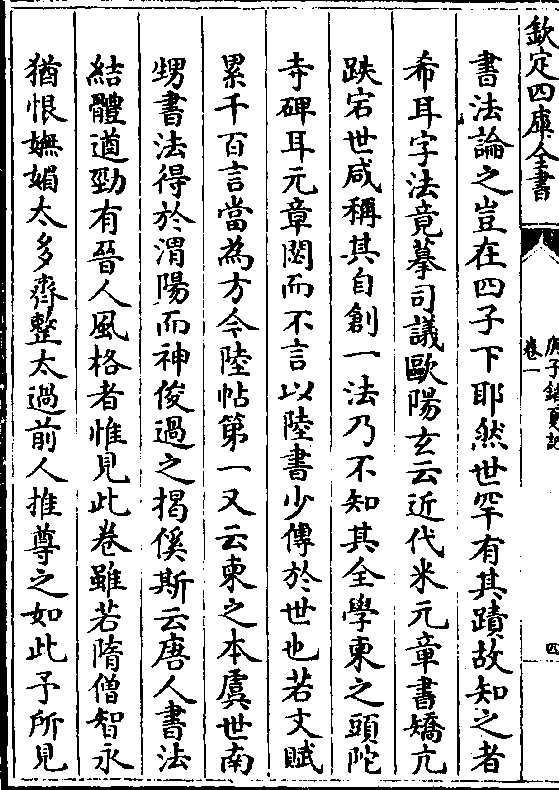 欽定四庫全書
庚子銷夏記
卷一
四
書法論之豈在四子下耶然世罕有其蹟故知之者
希耳字法竟摹司議歐陽玄云近代米元章書矯亢
跌宕世咸稱其自創一法乃不知其全學柬之頭陀
寺碑耳元章閟而不言以陸書少傳於世也若文賦
累千百言當為方今陸帖第一又云柬之本虞世南
甥書法得於渭陽而神俊過之揭傒斯云唐人書法
結體遒勁有晉人風格者惟見此卷雖若隋僧智永
猶恨嫵媚太多齊整太過前人推尊之如此予所見